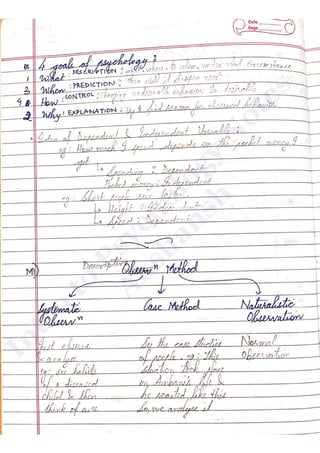 Date
Page
4 goals of psychology?
1. What : DESCRIPTION : what, where, to whom, under what circumstance
3. When : PREDICTION : when will it happen next
4. How : CONTROL : changing undesirable behavior to desirable
2. Why : EXPLANATION : try & find reason for observed behavior
• Dependent & Independent Variable :
eg: How much I spend depends on the pocket money I
get
↳ Spending : Dependent
Pocket money : Independent
eg: Short people run faster
↳ Height :
↳ Speed : Dependent
M1) Descriptive Observⁿ Method
Systematic Observⁿ
Case Method
Naturalistic Observation
Just observe
& analyse
eg: see habits
of a diseased
child & then
think of cure
See the case studies
of people. eg: This
situation took place
in Ambani's life &
he reacted like this
So, we analyse it
Normal
Observation